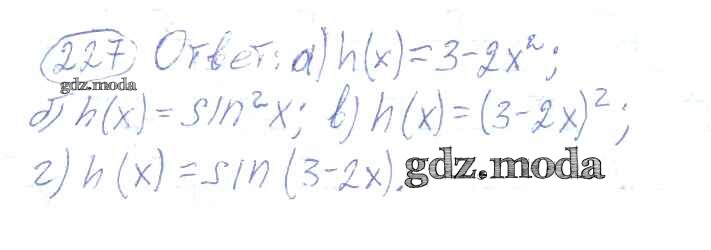 227 Ответ: а) h(x) = 3 - 2x²;
gdz.moda
б) h(x) = sin²x; в) h(x) = (3 - 2x)²;
г) h(x) = sin(3 - 2x).
gdz.moda